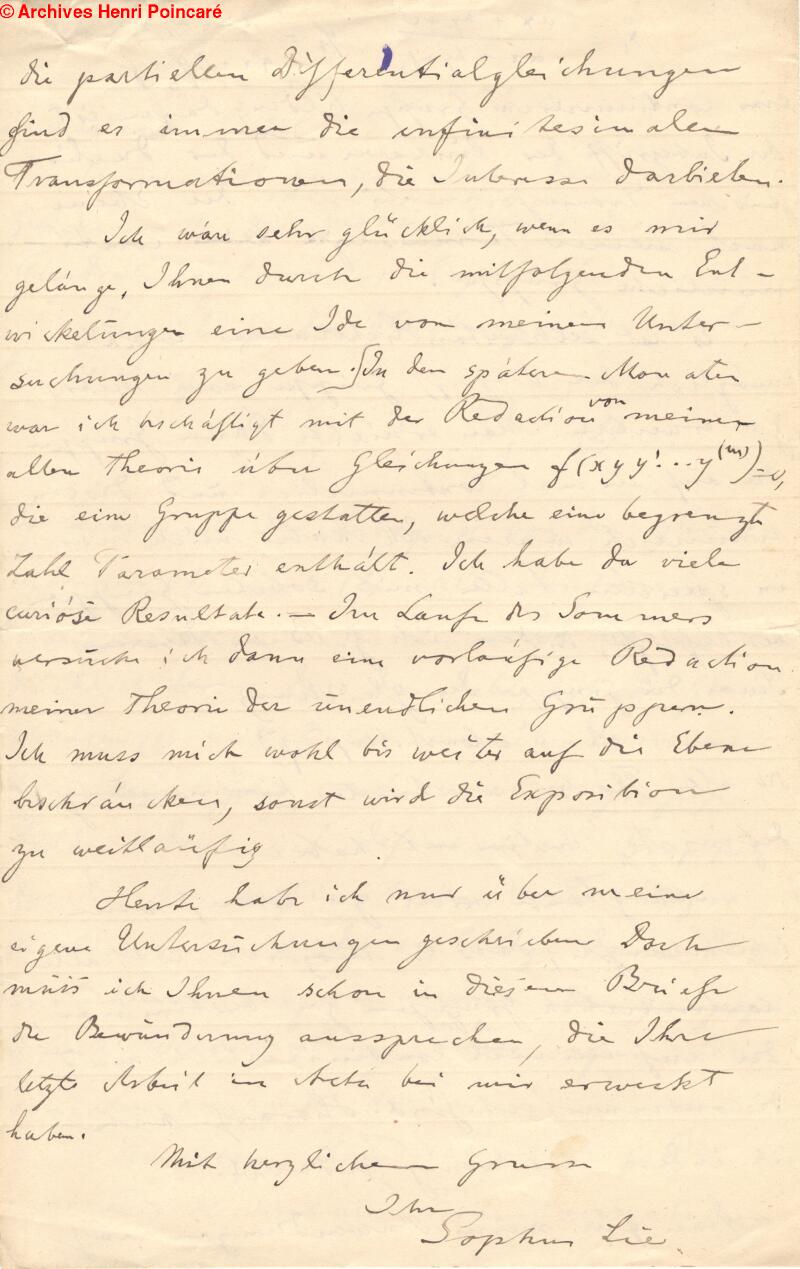 © Archives Henri Poincaré
die partiellen Differentialgleichungen
sind es immer die infinitesimalen
Transformationen, die Interesse darbieten.
Ich wäre sehr glücklich, wenn es mir
gelänge, Ihnen durch die mitfolgenden Ent-
wickelungen eine Ide von meinen Unter-
suchungen zu geben.] In den späteren Monaten
war ich beschäftigt mit der Redaction von meiner
alten Theorie über Gleichungen f(x y y'...y^(m))=0,
die eine Gruppe gestatten, welche eine begrenzte
Zahl Parameter enthält. Ich habe da viele
curiöse Resultate. — Im Laufe des Sommers
versuche ich dann eine vorläufige Redaction
meiner Theorie der unendlichen Gruppen.
Ich muss mich wohl bis weiter auf die Ebene
beschräncken, sonst wird die Exposition
zu weitläufig
Heute habe ich nur über meine
eigene Untersuchungen geschrieben Doch
muss ich Ihnen schon in diesem Briefe
die Bewunderung aussprechen, die Ihre
letzte Arbeit in Acta bei mir erweckt
haben.
Mit herzlichem Gruss
Ihr
Sophus Lie.